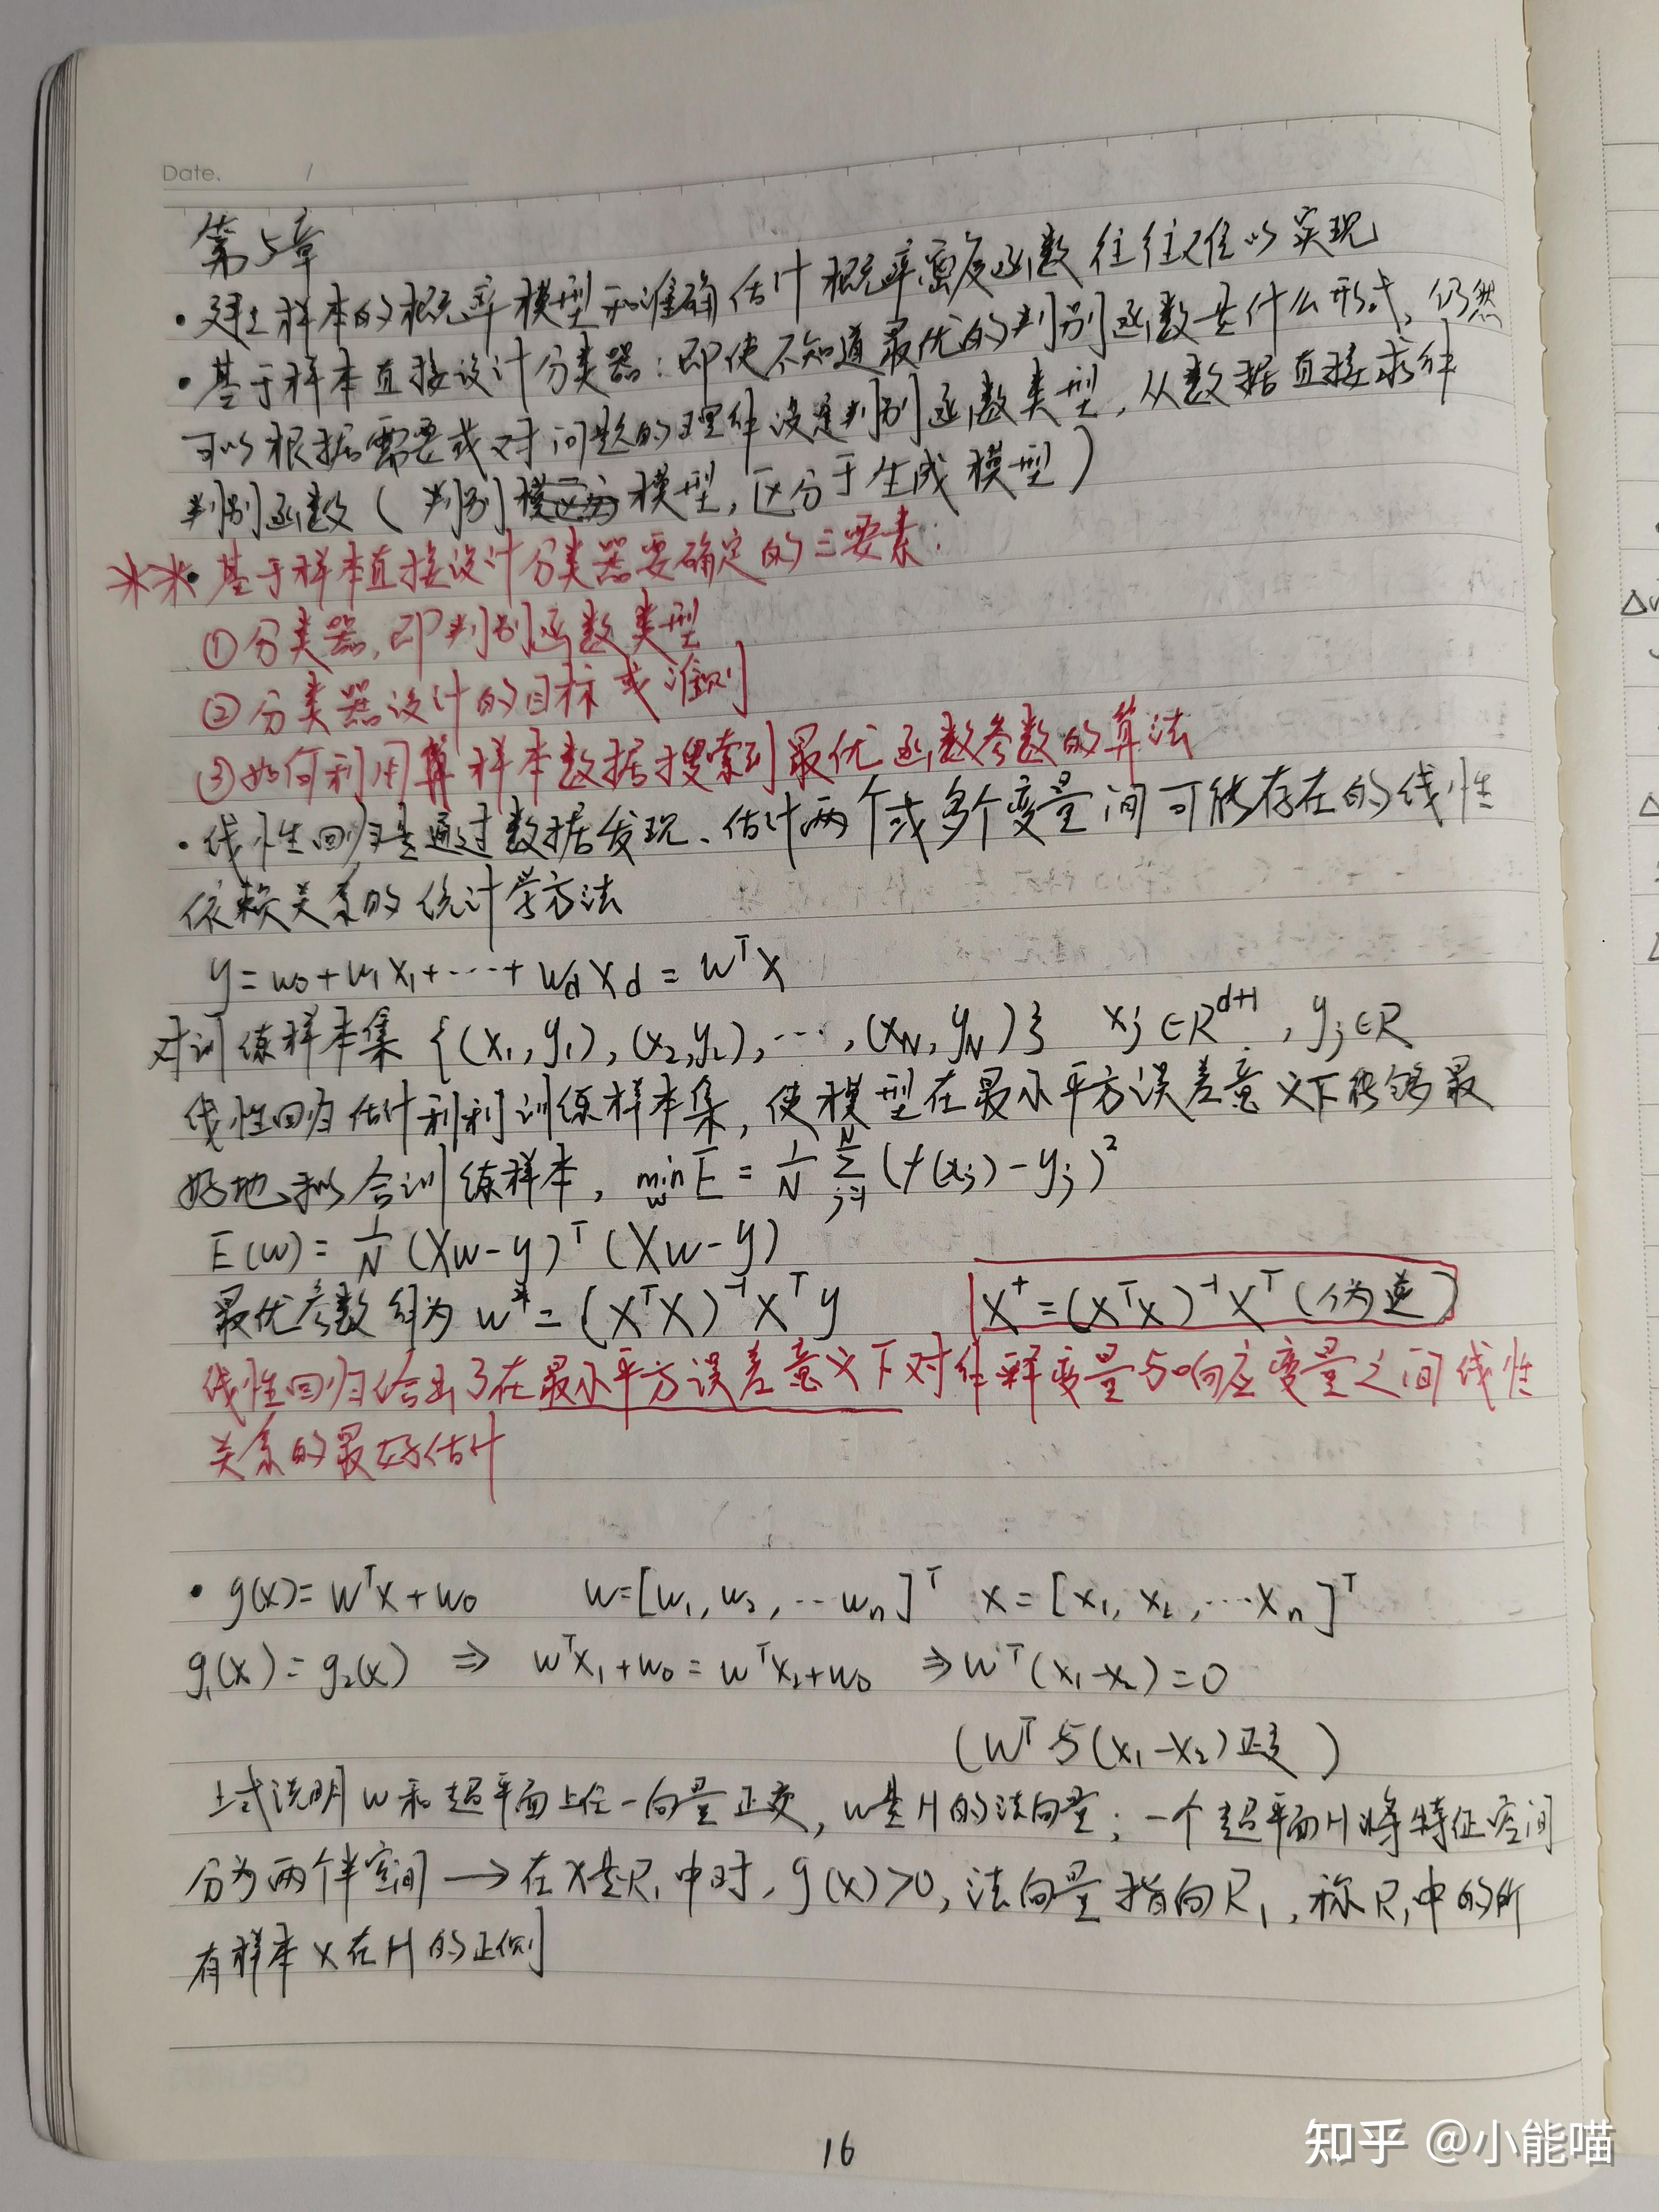 Date. /
第5章
·建立样本的概率模型和准确估计概率密度函数往往难以实现
·基于样本直接设计分类器:即使不知道最优的判别函数是什么形式,仍然
可以根据需要或对问题的理解设定判别函数类型,从数据直接求解
判别函数(判别模型,区分于生成模型)
**·基于样本直接设计分类器要确定的三要素:
①分类器,即判别函数类型
②分类器设计的目标或准则
③如何利用算样本数据搜索到最优函数参数的算法
·线性回归是通过数据发现、估计两个或多个变量间可能存在的线性
依赖关系的统计学方法
y=w₀+w₁x₁+⋯+w_d x_d=wᵀx
对训练样本集{(x₁,y₁),(x₂,y₂),⋯,(x_N,y_N)} x_j∈R^{d+1},y_j∈R
线性回归估计利利训练样本集,使模型在最小平方误差意义下能够最
好地拟合训练样本,min_w E=1/N Σ_{j=1}^N (f(x_j)-y_j)²
E(w)=1/N(Xw-y)ᵀ(Xw-y)
最优参数组为w*=(XᵀX)⁻¹Xᵀy X⁺=(XᵀX)⁻¹Xᵀ(伪逆)
线性回归给出了在最小平方误差意义下对解释变量与响应变量之间线性
关系的最好估计
·g(x)=wᵀx+w₀ w=[w₁,w₂,⋯wₙ]ᵀ x=[x₁,x₂,⋯xₙ]ᵀ
g₁(x)=g₂(x) ⇒ wᵀx₁+w₀=wᵀx₂+w₀ ⇒wᵀ(x₁-x₂)=0
(wᵀ与(x₁-x₂)正交)
上式说明w和超平面上任一向量正交,w是H的法向量;一个超平面H将特征空间
分为两个半空间→在x是R₁中时,g(x)>0,法向量指向R₁,称R₁中的所
有样本x在H的正侧
16
知乎 @小能喵